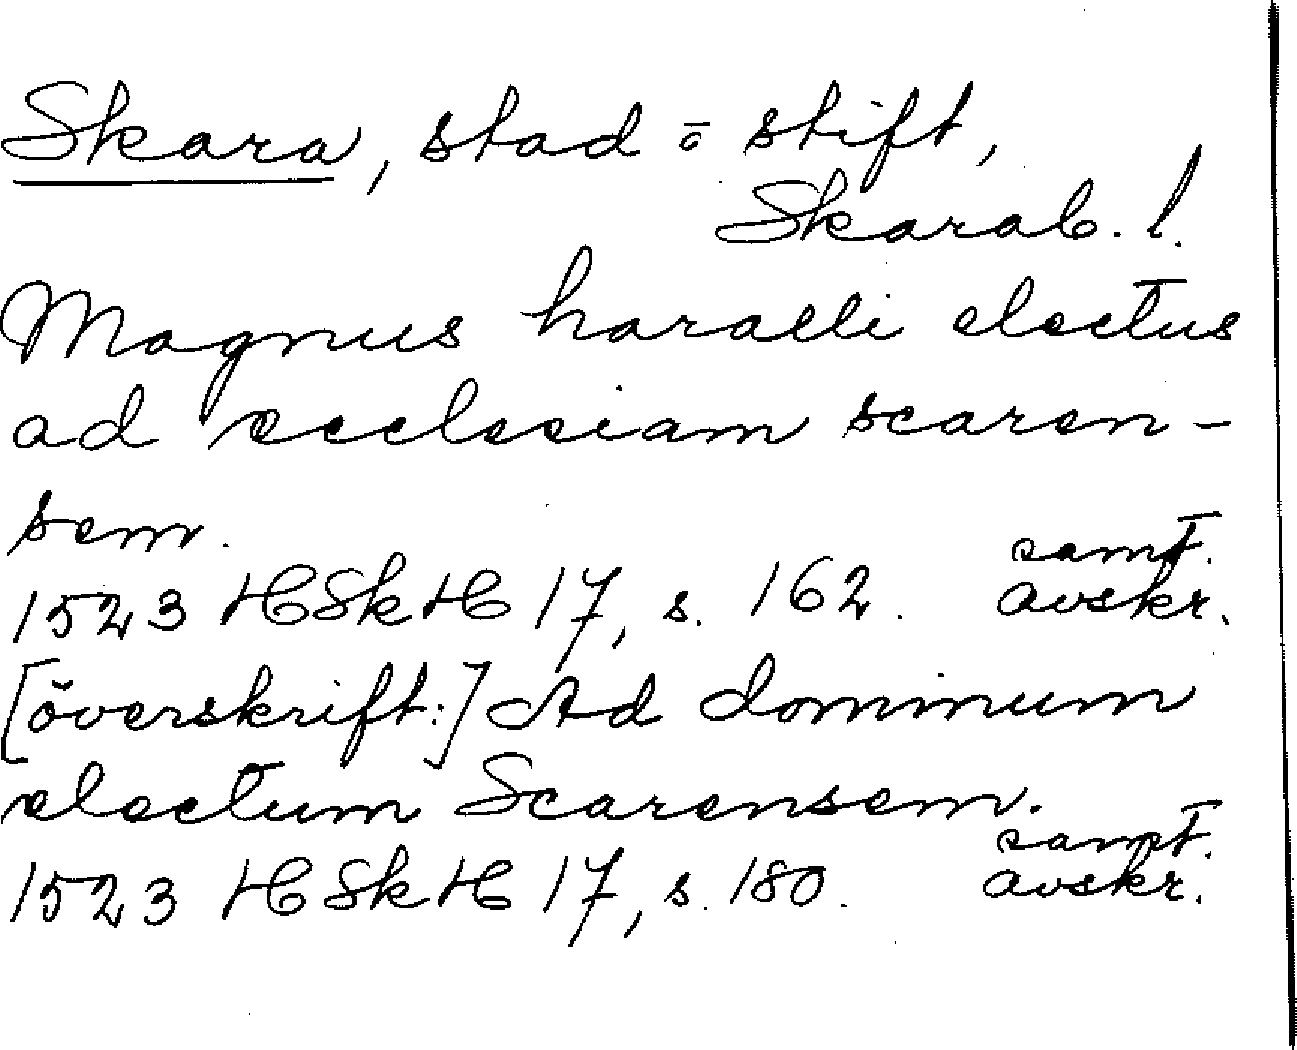 Skara, stad o stift,
Skarab. l.
Magnus haralli electus
ad ecclesiam scaren-
sem.
1523 HSkH 17, s. 162. samt. avskr.
[överskrift:] Ad dominum
electum Scarensem.
1523 HSkH 17, s. 180. samt. avskr.